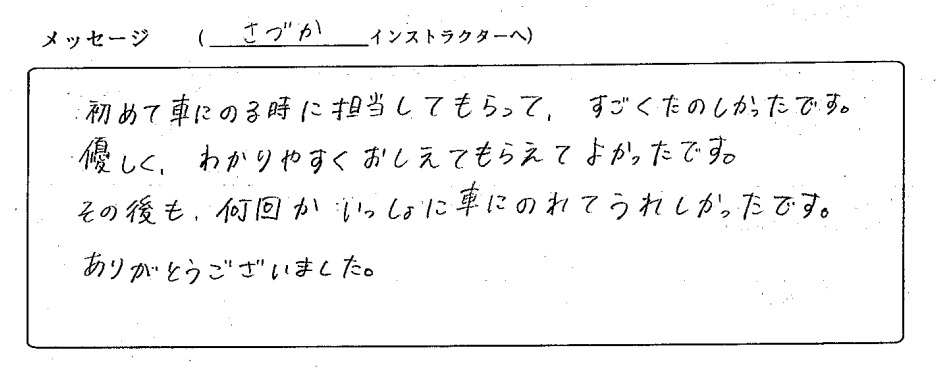 メッセージ (さづか インストラクターへ)
初めて車にのる時に担当してもらって、すごくたのしかったです。
優しく、わかりやすくおしえてもらえてよかったです。
その後も、何回かいっしょに車にのれてうれしかったです。
ありがとうございました。